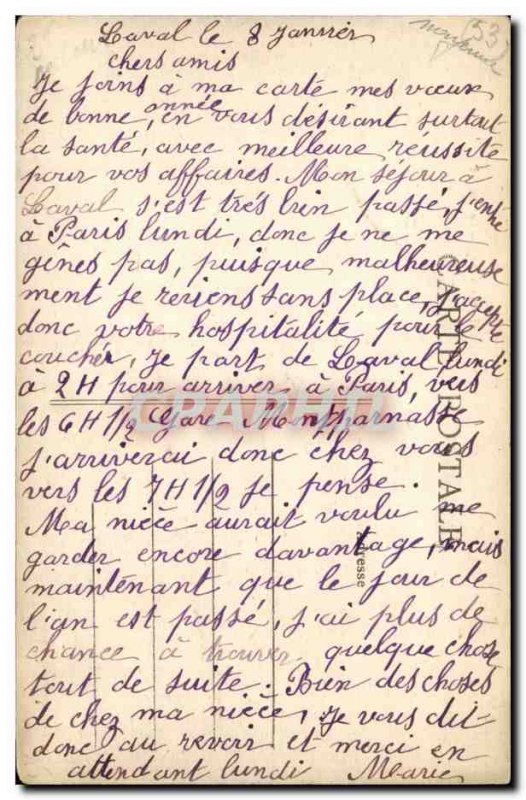 (53)
Laval le 8 Janvier
chers amis
Je joins à ma carte mes vœux
de bonne année, en vous désirant surtout
la santé, avec meilleure réussite
pour vos affaires. Mon séjour à
Laval s'est trés bien passé, j'entre
à Paris lundi, donc je ne me
gênes pas, puisque malheureuse
ment je reviens sans place, j'accepte
donc votre hospitalité pour le
coucher, Je part de Laval lundi
à 2H pour arriver à Paris, vers
les 6H 1/2 Gare Montparnasse
j'arriverai donc chez vous
vers les 7H 1/2 je pense.
Ma nièce aurait voulu me
garder encore davantage, mais
maintenant que le jour de
l'an est passé, j'ai plus de
chance à trouver quelque chose
tout de suite. Bien des choses
de chez ma nièce, Je vous dit-
donc au revoir et merci en
attendant lundi Marie
CARTE POSTALE
CPARAMA